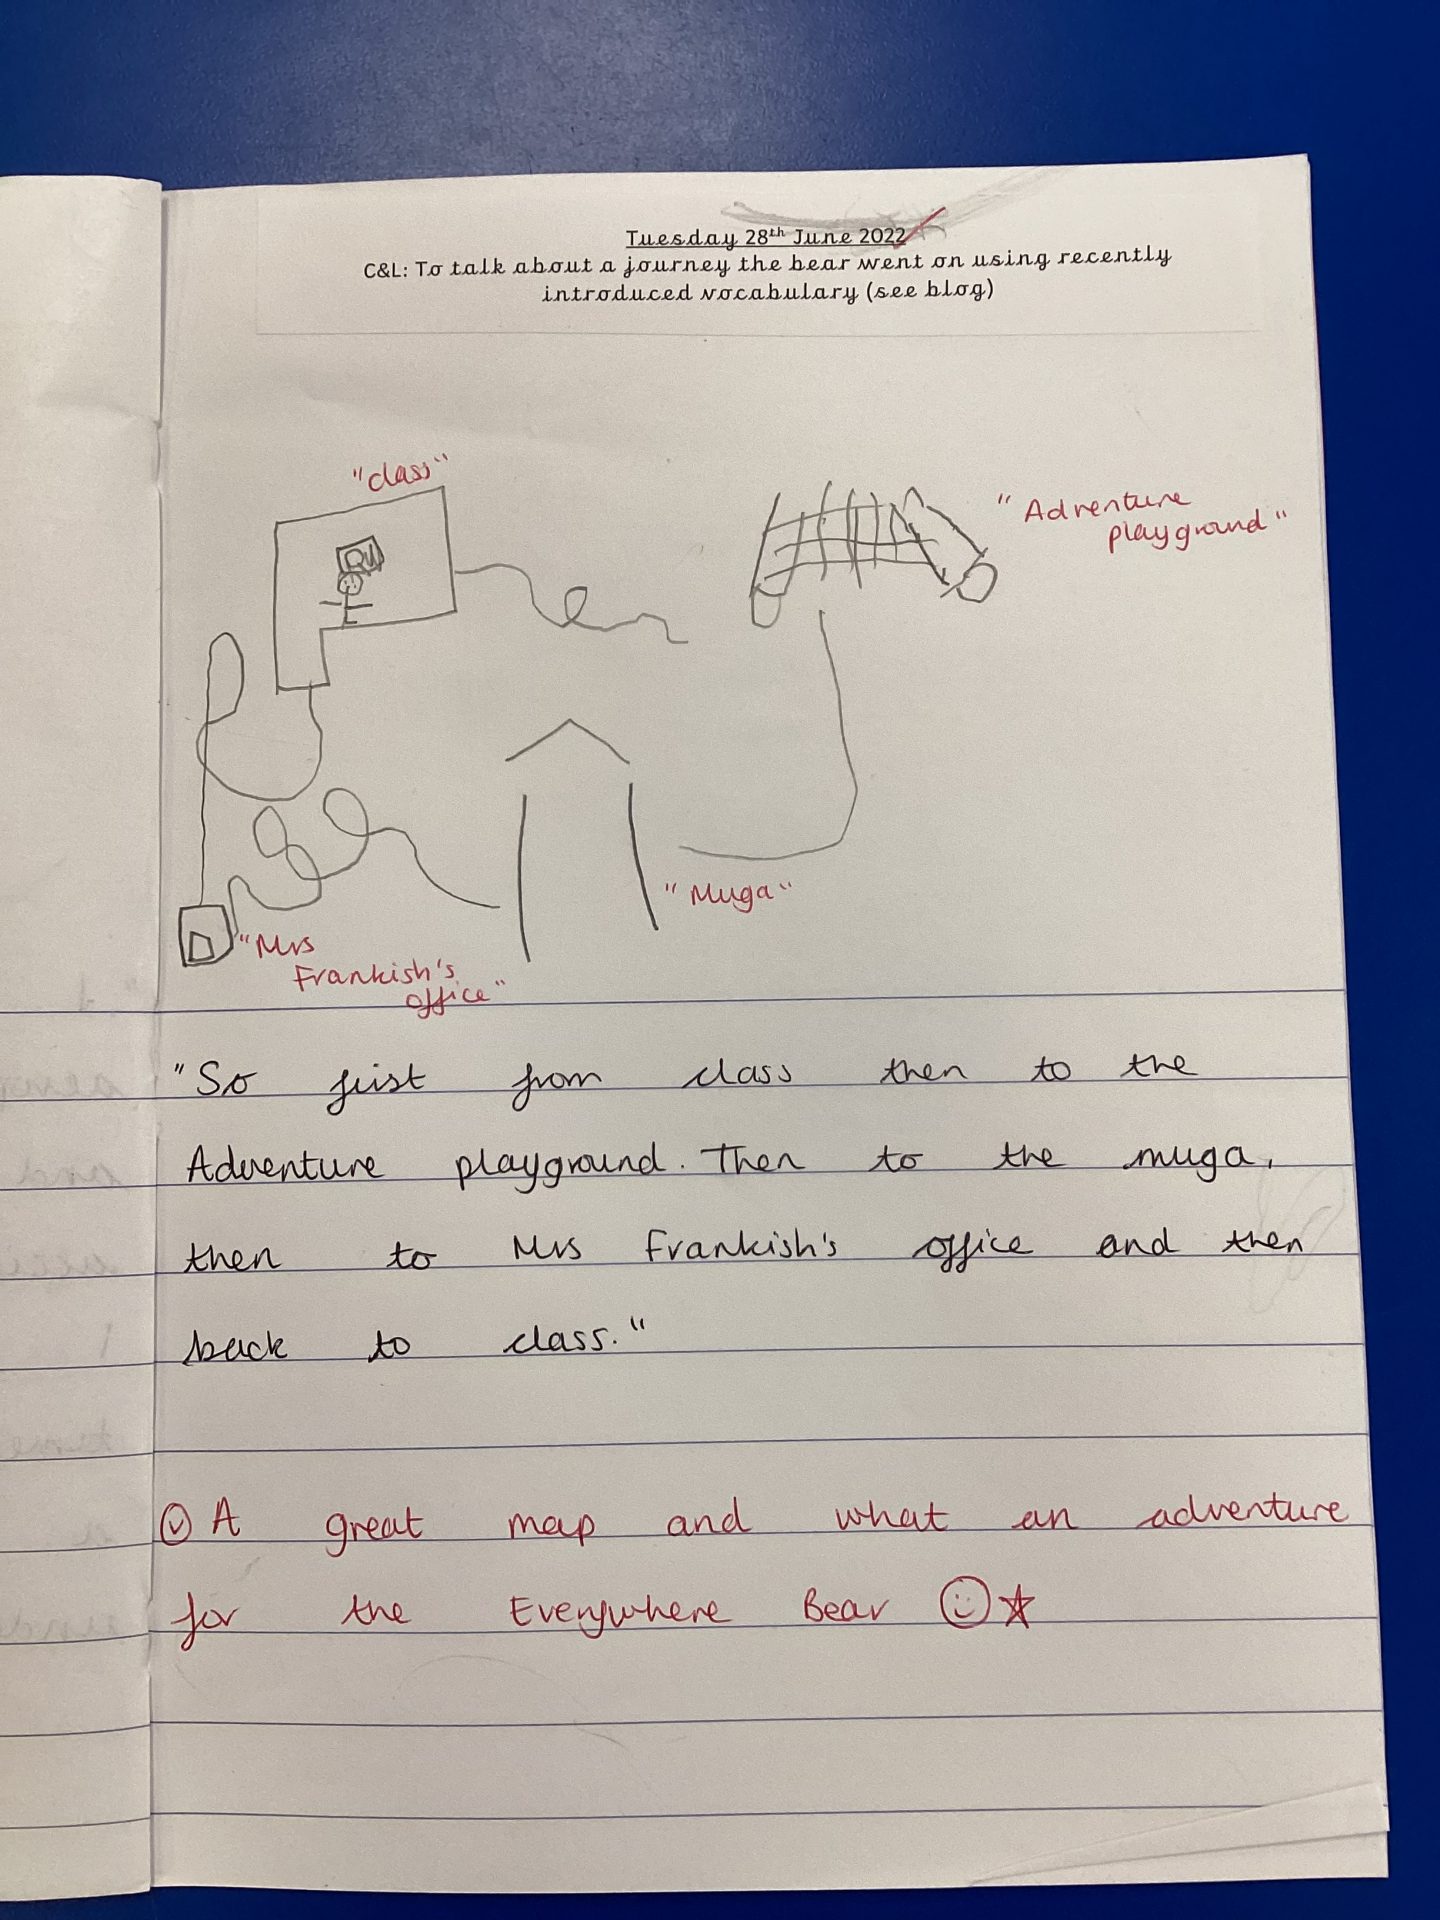 Tuesday 28th June 2022
C&L: To talk about a journey the bear went on using recently
introduced vocabulary (see blog)
"class"
"Adventure
playground"
"Muga"
"Mrs
Frankish's
office"
"So first from class then to the
Adventure playground. Then to the muga,
then to Mrs Frankish's office and then
back to class."
A great map and what an adventure
for the Everywhere Bear